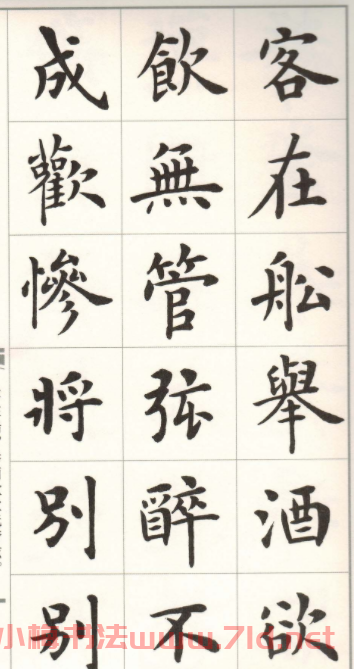 客在舩舉酒欲
飲無管弦醉不
成歡慘將別別
小楷书法www.7ld.net